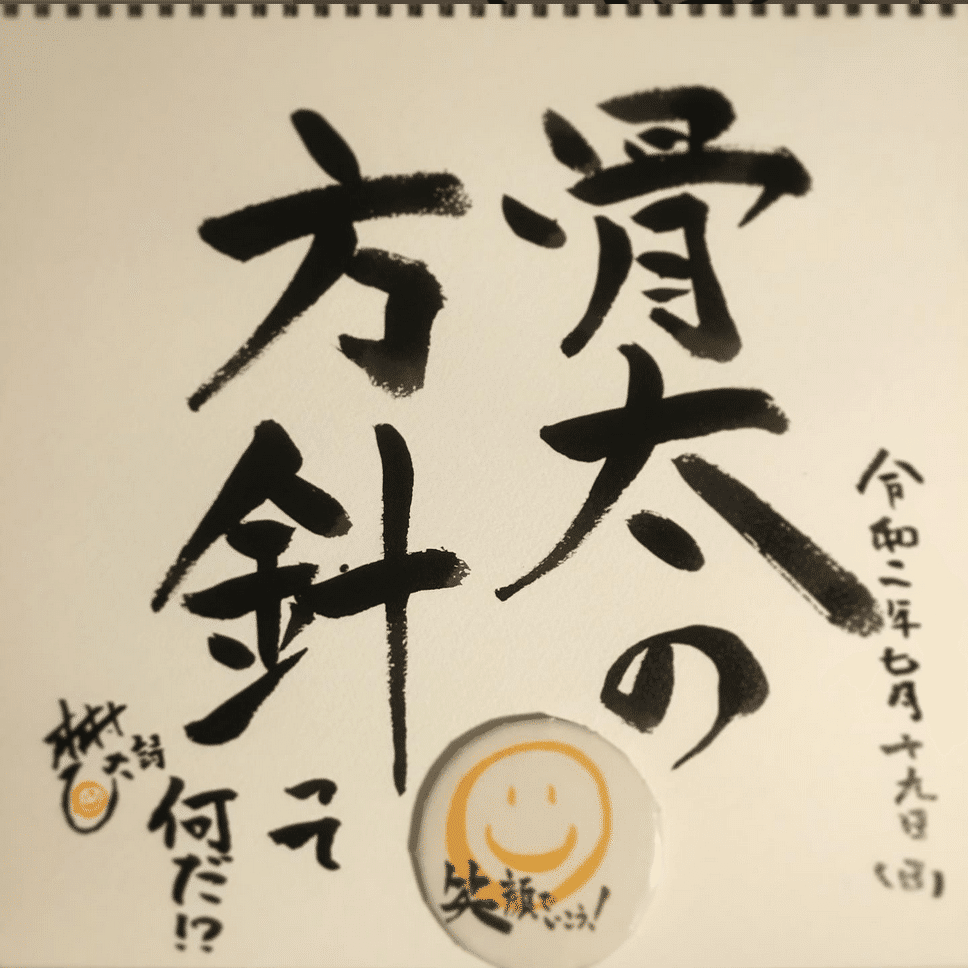 令和二年七月十九日(日)
骨太の
方針
って
何だ!?
笑顔でいこう!